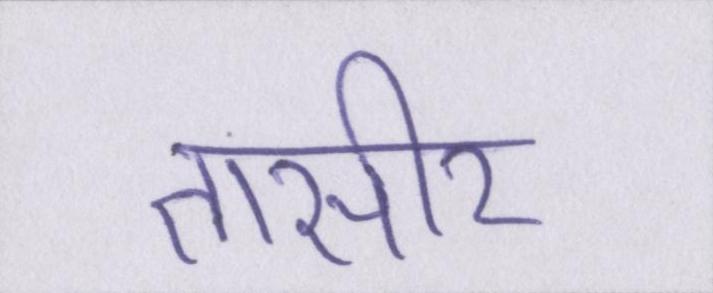 तासीर